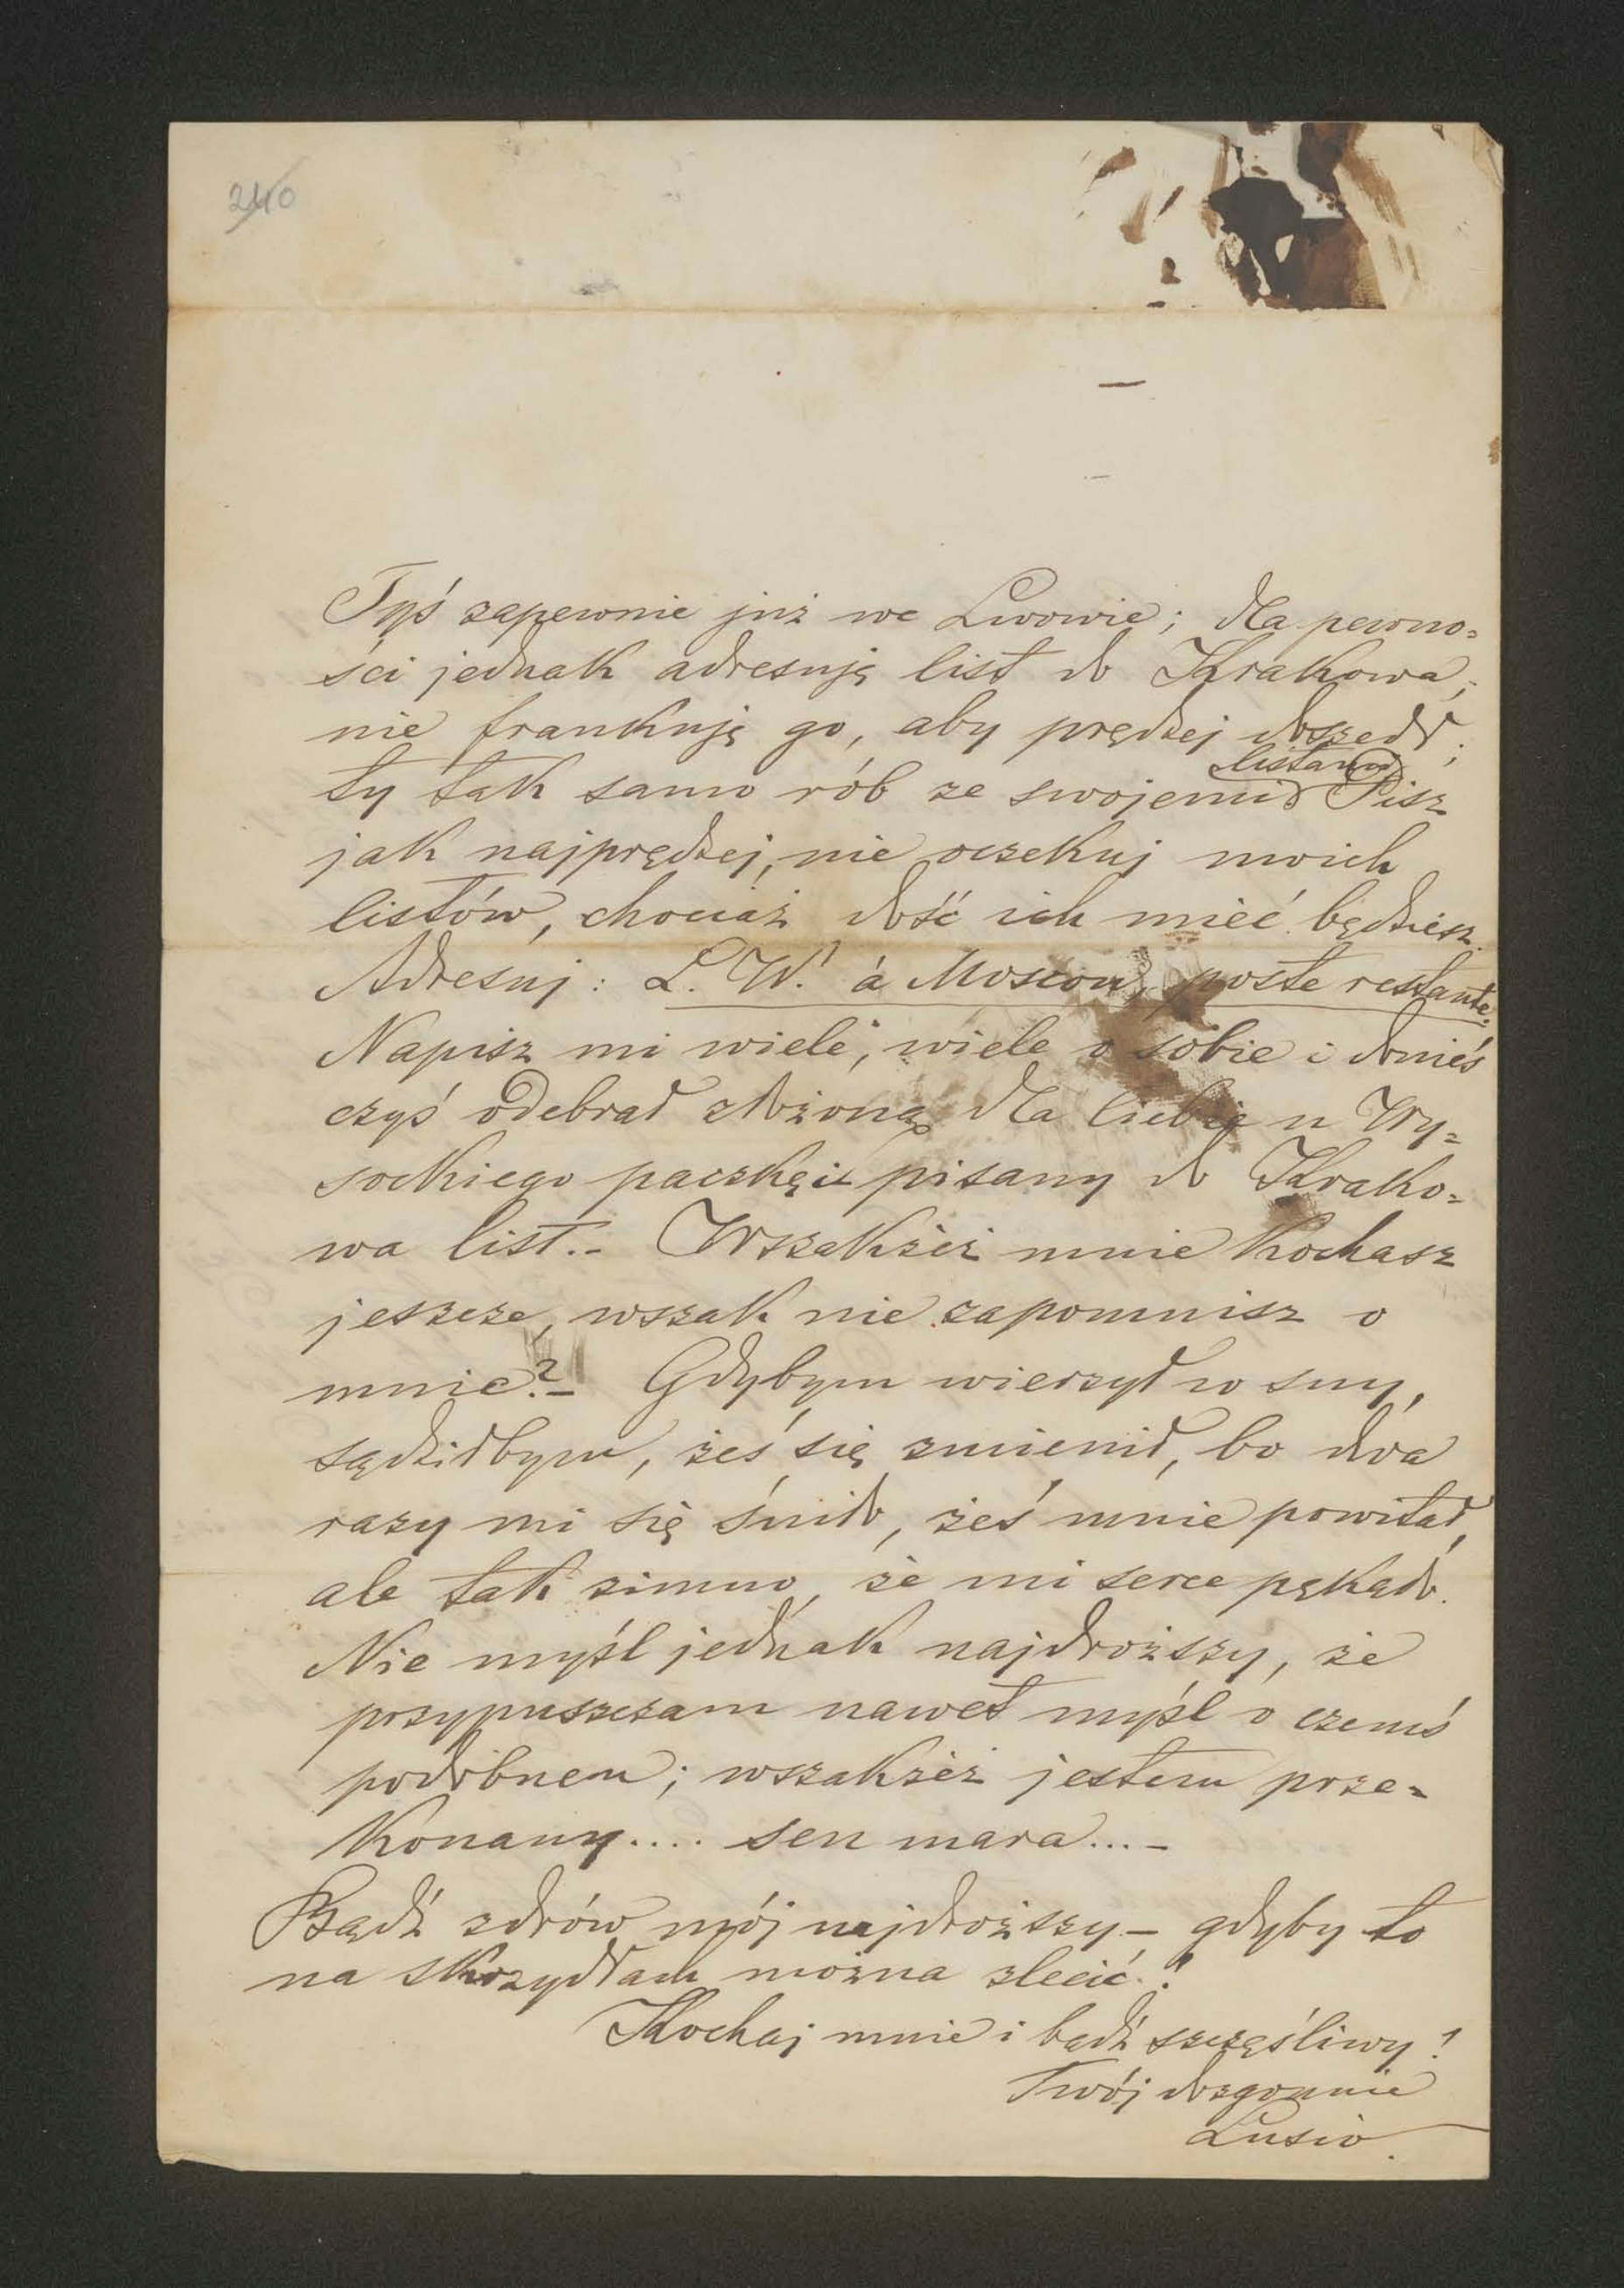 240
Tyś zapewnie już we Lwowie; dla pewno=
ści jednak adresuję list do Krakowa;
nie frankuję go, aby prędzej doszedł;
listami
ty tak samo rób ze swojemi Pisz
jak najprędzej, nie oczekuj moich
listów, chociaż dość ich mieć będziesz.
Adresuj: L. W. à Moscou, poste restante.
Napisz mi wiele, wiele o sobie i donieś
czyś odebrał złożoną dla Ciebie u Wy=
sockiego paczkę i pisany do Krako=
wa list.- Wszakżeż mnie kochasz
jeszcze, wszak nie zapomnisz o
mnie?- Gdybym wierzył w sny,
sądziłbym, żeś się zmienił, bo dwa
razy mi się śniło, żeś mnie powitał,
ale tak zimno, że mi serce pękało.
Nie myśl jednak najdroższy, że
przypuszczam nawet myśl o czemś
podobnem; wszakżeż jestem prze=
konany.... sen mara...-
Bądź zdrów mój najdroższy- gdyby to
na skrzydłach można zlecić!
Kochaj mnie i bądź szczęśliwy!
Twój dozgonnie
Lusio.